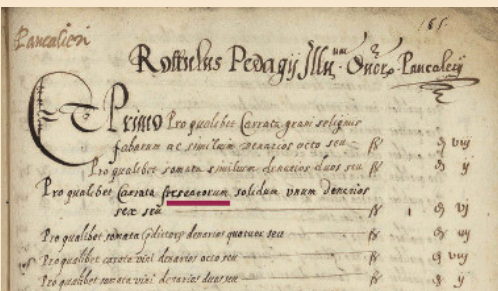 185.
Pancalieri
Rottulus Pedagij Illu. um Dnor. Pancalerij
Et Primo Pro qualibet Carrata grani seliginis
fabarum ac similium denarios octo seu ff ₰ viij
Pro qualibet somata similium denarios duos seu ff ₰ ij
Pro qualibet Carrata solidum unum denarios
sex seu ff 1 ₰ vj
Pro qualibet somata denarios quatuor seu ff ₰ iiij
Pro qualibet carata vini denarios octo seu ff ₰ viij
Pro qualibet somata vini denarios duos seu ff ₰ ij